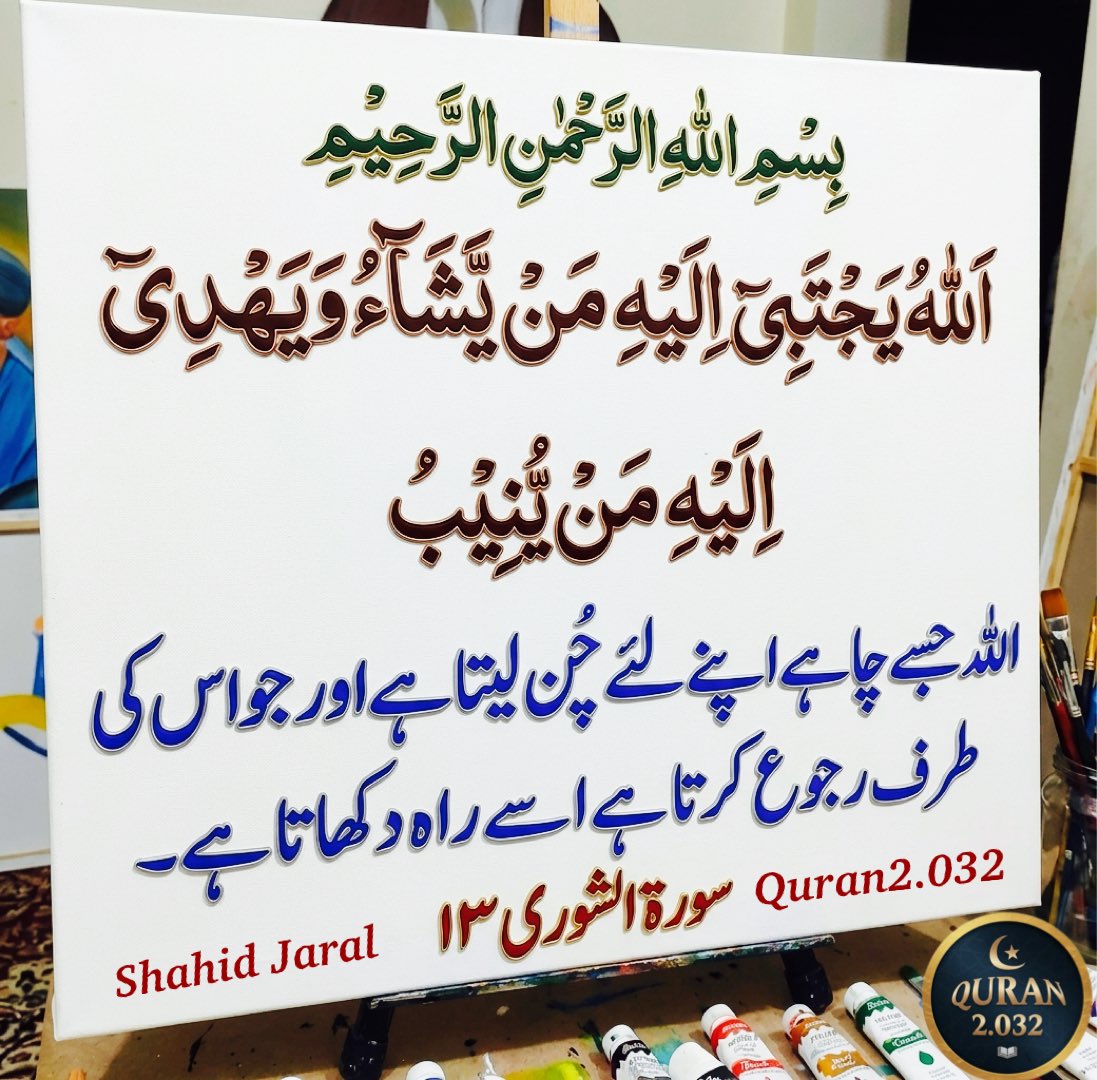 بِسْمِ اللهِ الرَّحْمٰنِ الرَّحِيْمِ
اَللهُ يَجْتَبِيْٓ اِلَيْهِ مَنْ يَّشَآءُ وَيَهْدِيْٓ
اِلَيْهِ مَنْ يُّنِيْبُ
اللہ جسے چاہے اپنے لئے چُن لیتا ہے اور جو اس کی
طرف رجوع کرتا ہے اسے راہ دکھاتا ہے۔
سورۃ الشوری ۱۳
Quran2.032
Shahid Jaral
QURAN
2.032